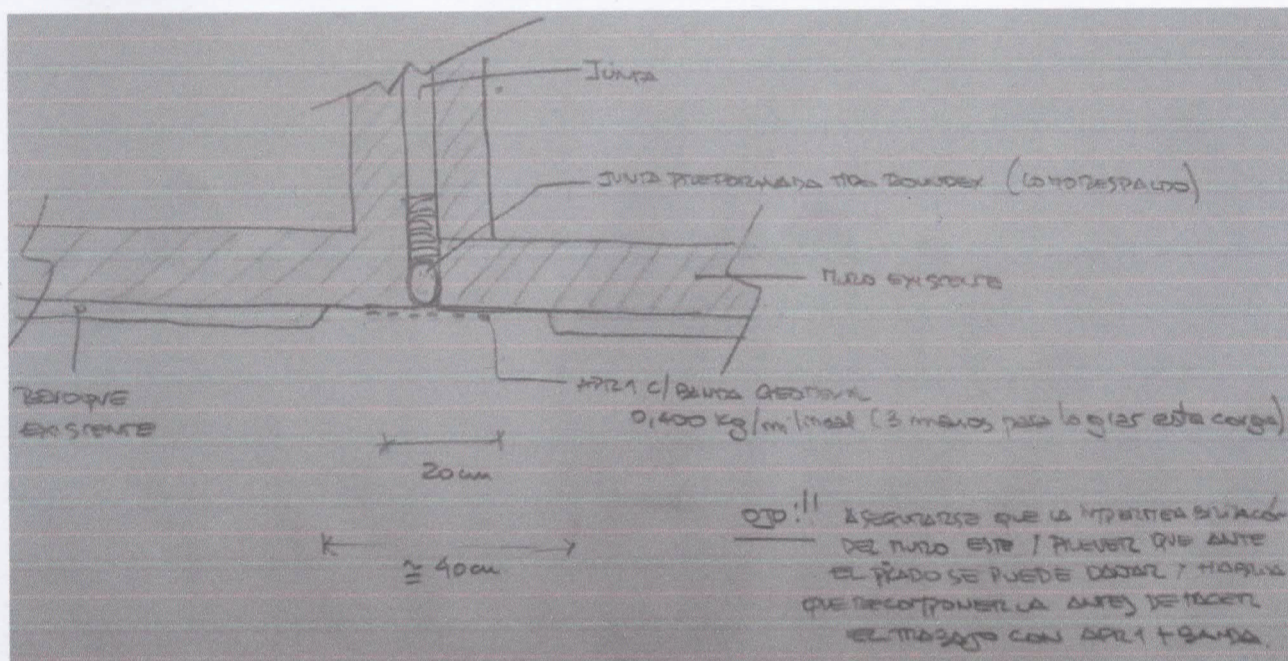 JUNTA
JUNTA PREFORMADA TIPO ROUNDEX (COMO RESPALDO)
MURO EXISTENTE
REVOQUE
EXISTENTE
APR1 C/BANDA GEOTEXTIL
0,400 kg/m lineal (3 manos para lograr esta carga)
20 cm
≅ 40 cm
OJO!!! ASEGURARSE QUE LA IMPERMEABILIZACIÓN
DEL MURO ESTE / PREVER QUE ANTE
EL PICADO SE PUEDE DAÑAR Y HABRIA
QUE RECOMPONERLA ANTES DE HACER
EL TRABAJO CON APR1 + BANDA.